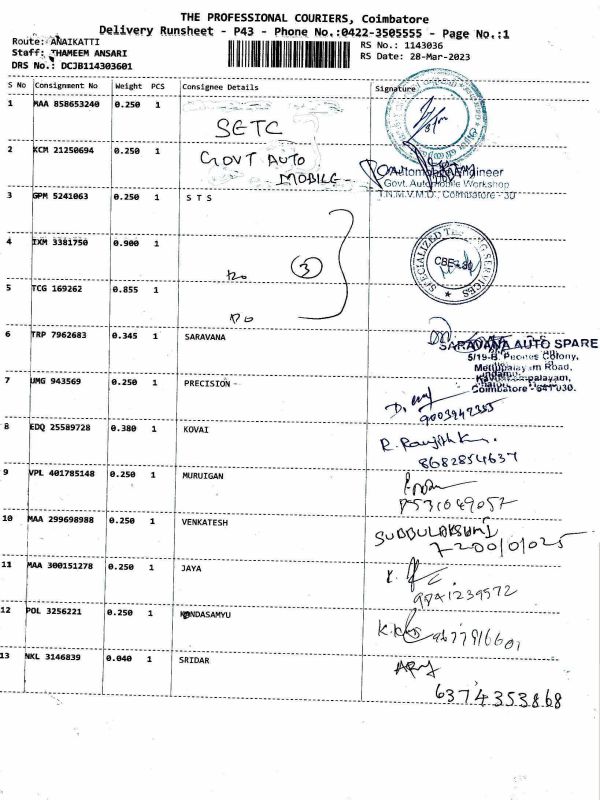 THE PROFESSIONAL COURIERS, Coimbatore
Delivery Runsheet - P43 - Phone No.:0422-3505555 - Page No.:1
Route: ANAIKATTI
Staff: THAMEEM ANSARI
DRS No.: DCJB114303601
RS No.: 1143036
RS Date: 28-Mar-2023
S No Consignment No Weight PCS Consignee Details Signature
1 MAA 858653240 0.250 1
SETC
2 KCM 21250694 0.250 1 GOVT AUTO
MOBILE-
Automobile Engineer
Govt. Automobile Workshop
T.N.M.V.M.D., Coimbatore - 30
3 GPM 5241063 0.250 1 S T S
4 IXM 3381750 0.900 1
3
SPECIALIZED SERVICES
5 TCG 169262 0.855 1
DO
6 TRP 7962683 0.345 1 SARAVANA
SARAVANA AUTO SPARE
5/19-B, Peoples Colony,
Mettupalayam Road,
Coimbatore - 641 030.
7 UMG 943569 0.250 1 PRECISION
9003942355
8 EDQ 25589728 0.380 1 KOVAI
R. Ranjithk
8682854637
9 VPL 401785148 0.250 1 MURUIGAN
8531049057
10 MAA 299698988 0.250 1 VENKATESH
SUBBULAKSHMI
7200101025
11 MAA 300151278 0.250 1 JAYA
9841239572
12 POL 3256221 0.250 1 KANDASAMYU
9677916601
13 NKL 3146839 0.040 1 SRIDAR
6374353868